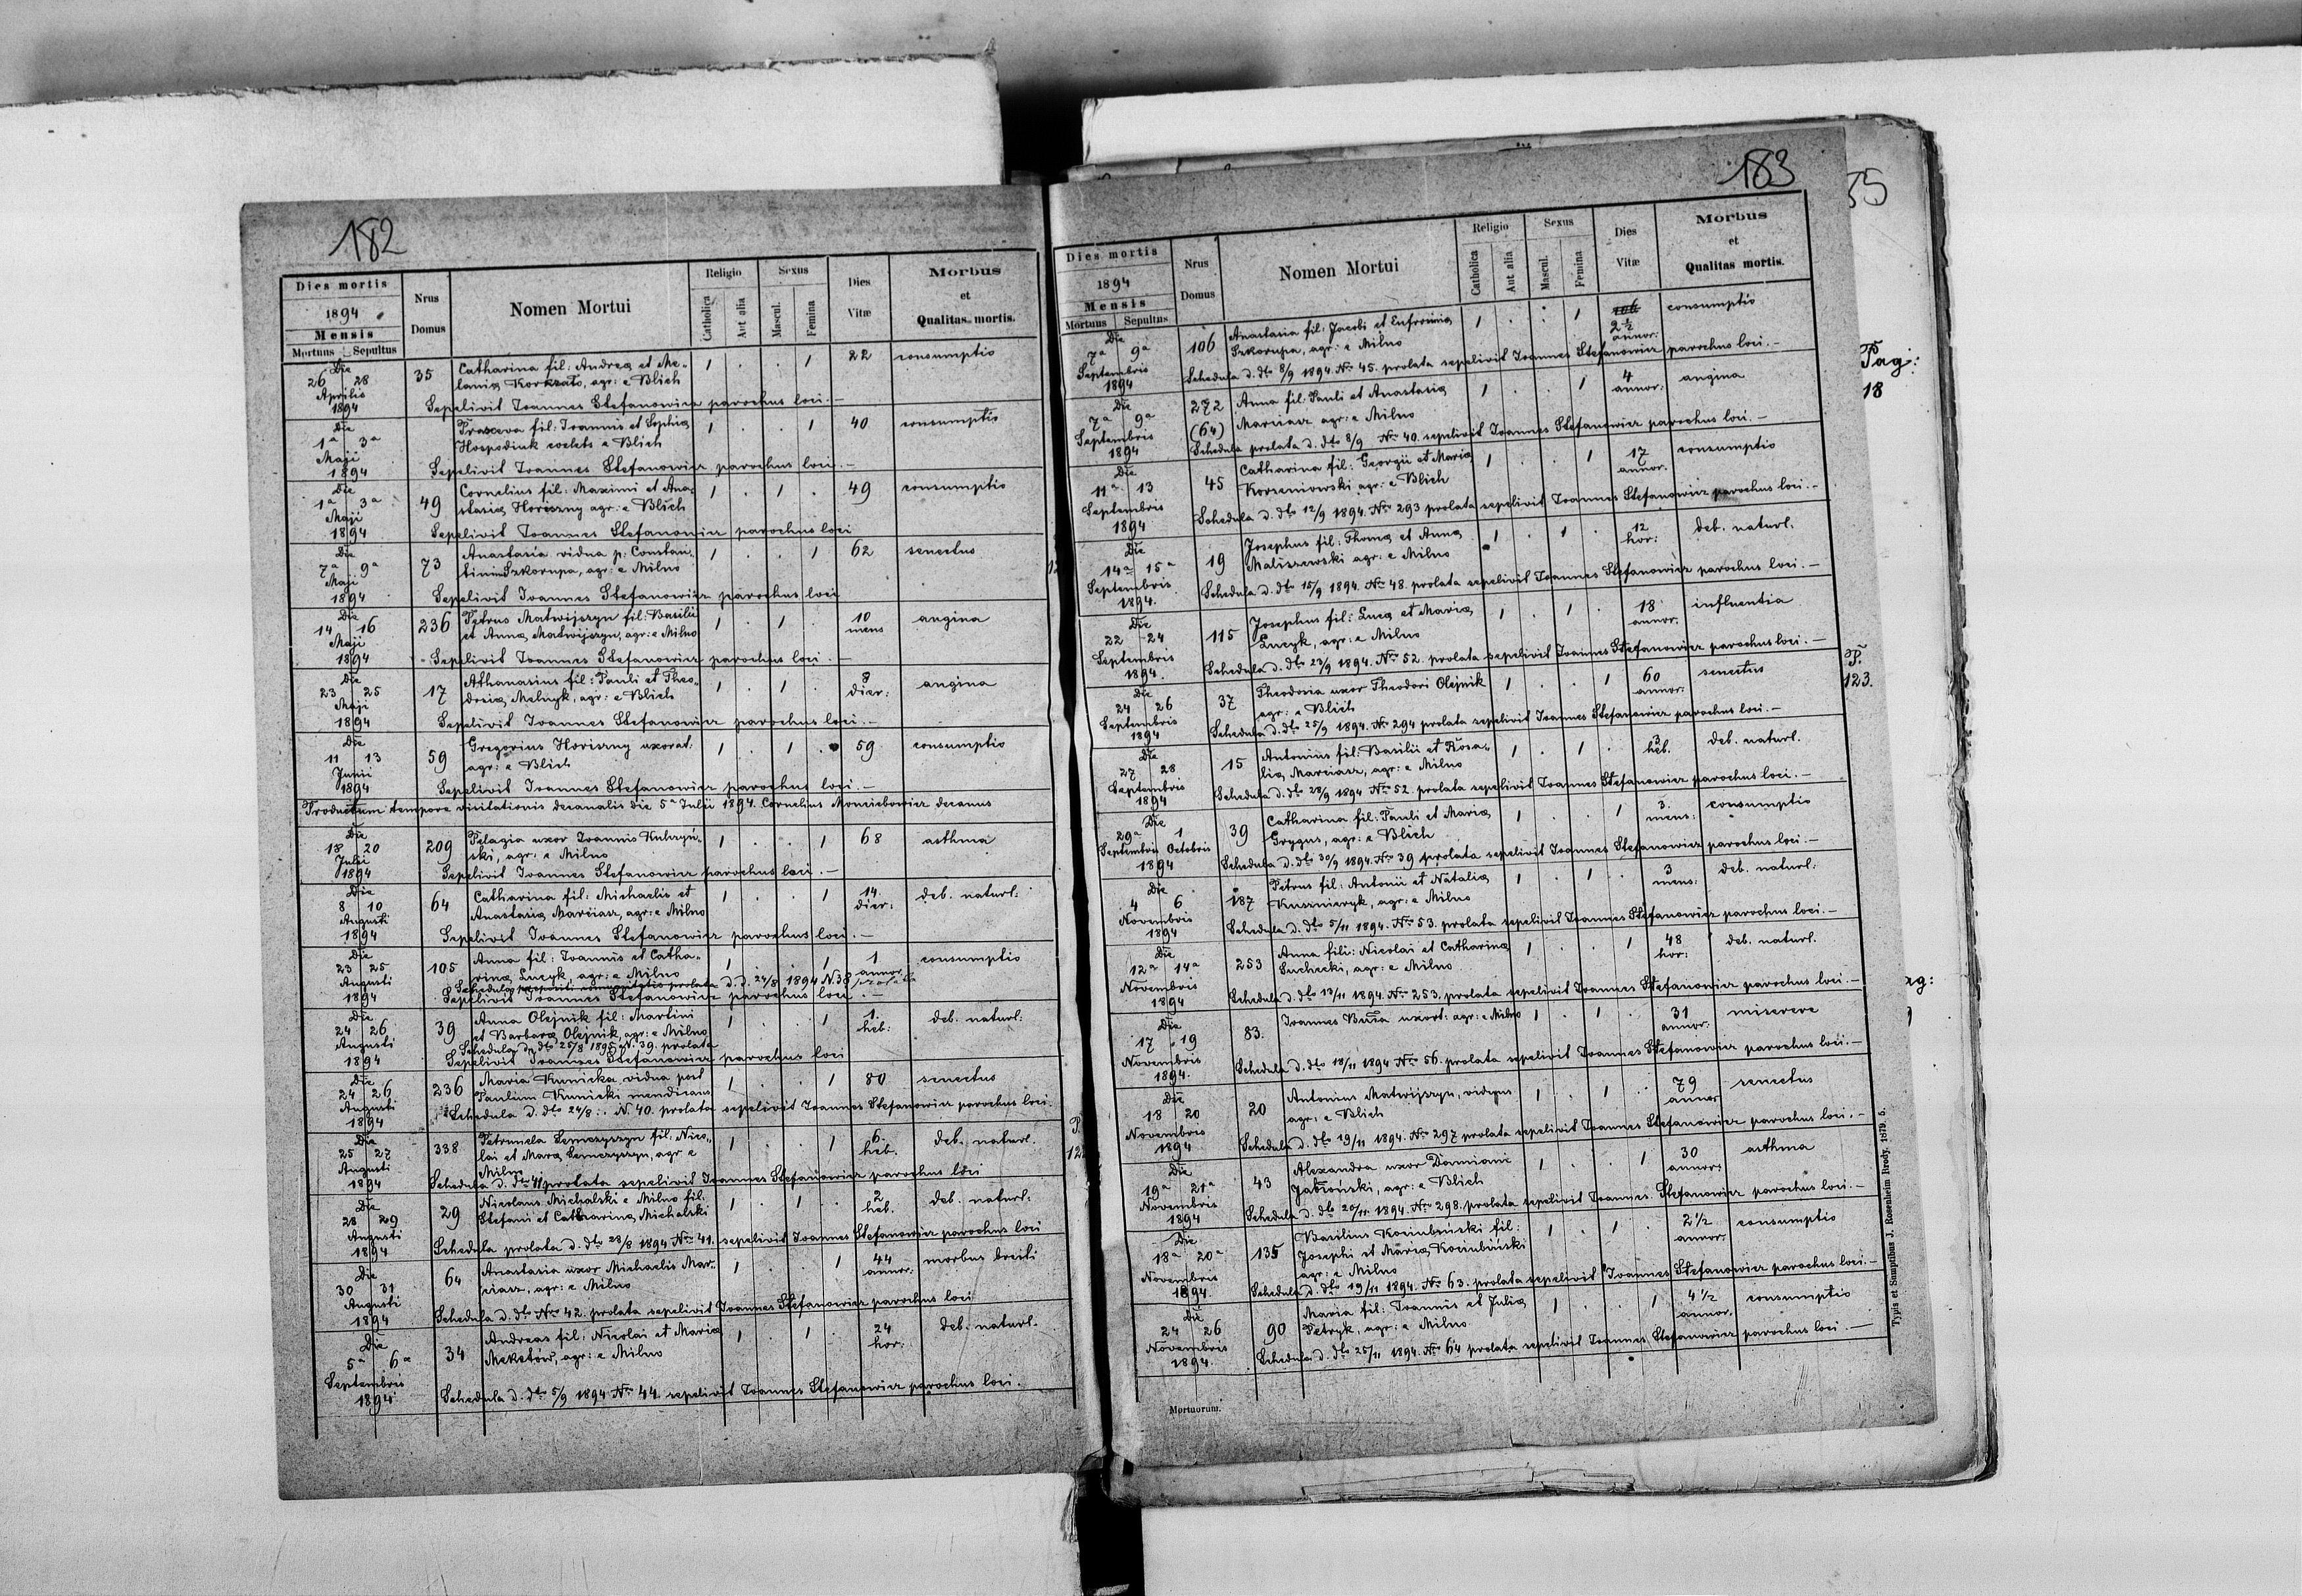 182
Dies mortis
1894
Mensis
Mortuus Sepultus
Nrus Domus
Nomen Mortui
Religio
Catholica
Aut alia
Sexus
Mascul.
Femina
Dies Vitæ
Morbus et Qualitas mortis.
Die 26 28 Aprilis 1894
35
Catharina fil: Andreæ et Me-
laniæ Korkzato, agr: e Blich
1 . . 1
22
consumptio
Sepelivit Ioannes Stefanowicz parochus loci. –
Die 1a 3a Maji 1894
Praxeva fil: Ioannis et Sophiæ
Hospodiuk coelebs e Blich
1 . . 1
40
consumptio
Sepelivit Ioannes Stefanowicz parochus loci. –
Die 1a 3a Maji 1894
49
Cornelius fil: Maximi et Ana-
stasiæ Horiszny agr: e Blich
1 . 1 .
49
consumptio
Sepelivit Ioannes Stefanowicz parochus loci
Die 7a 9a Maji 1894
73
Anastasia vidua p: Constan-
tinum Szkorupa, agr: e Milno
1 . . 1
62
senectus
Sepelivit Ioannes Stefanowicz parochus loci
Die 14 16 Maji 1894
236
Petrus Matwijszyn fil: Basilii
et Annæ Matwijszyn, agr: e Milno
1 . 1 .
10 mens
angina
Sepelivit Ioannes Stefanowicz parochus loci. –
Die 23 25 Maji 1894
17
Athanasius fil: Pauli et Theo-
dosiæ Melnyk, agr: e Blich
1 . 1 .
8 dier:
angina
Sepelivit Ioannes Stefanowicz parochus loci. –
Die 11 13 Junii 1894
59
Gregorius Horiszny uxorat:
agr: e Blich
1 . 1 .
59
consumptio
Sepelivit Ioannes Stefanowicz parochus loci. –
Productum tempore visitationis decanalis die 5a Julii 1894. Cornelius Moncibowicz decanus
Die 18 20 Julii 1894
209
Pelagia uxor Ioannis Kuhryń-
ski, agr: e Milno
1 . . 1
68
asthma
Sepelivit Ioannes Stefanowicz parochus loci. –
Die 8 10 Augusti 1894
64
Catharina fil: Michaelis et
Anastasiæ Marciasz, agr: e Milno
1 . . 1
14. dier:
deb. naturl:
Sepelivit Ioannes Stefanowicz parochus loci. –
Die 23 25 Augusti 1894
105
Anna fil: Ioannis et Catha-
rinæ Łucyk agr: e Milno
1 . . 1
1 annor
consumptio
Schedula prolata d. d. 24/8 1894 N. 38
Sepelivit Ioannes Stefanowicz parochus loci. –
Die 24 26 Augusti 1894
39
Anna Olejnik fil: Martini
et Barbaræ Olejnik, agr: e Milno
1 . . 1
1. heb:
deb. naturl:
Schedula d. dto 25/8 1895 N. 39. prolata
Sepelivit Ioannes Stefanowicz parochus loci
Die 24 26 Augusti 1894
236
Maria Kunicka vidua post
Paulum Kunicki mendicans
1 . . 1
80
senectus
Schedula d. dto 24/8 . N 40. prolata sepelivit Ioannes Stefanowicz parochus loci.
Die 25 27 Augusti 1894
338
Petrunela Semczyszyn fil: Nico-
lai et Mariæ Semczyszyn, agr e
Milno
1 . . 1
6. heb.
deb. naturl.
Schedula d. dto 41 prolata sepelivit Ioannes Stefanowicz parochus loci
Die 28 29 Augusti 1894
29
Nicolaus Michalski e Milno fil:
Stefani et Catharinæ Michalski
1 . 1 .
2 heb.
deb. naturl:
Schedula prolata d. dto 28/8 1894 Nro 41. sepelivit Ioannes Stefanowicz parochus loci
Die 30 31 Augusti 1894
64
Anastasia uxor Michaelis Mar-
ciasz, agr: e Milno
1 . . 1
44 annor:
morbus breiti
Schedula d. dto Nro 42. prolata sepelivit Ioannes Stefanowicz parochus loci
Die 5a 6a Septembris 1894
34
Andreas fil: Nicolai et Mariæ
Meketów, agr: e Milno
1 . 1 .
24 hor:
deb. naturl.
Schedula d. dto 5/9 1894 Nro 44. sepelivit Ioannes Stefanowicz parochus loci.
183
Dies mortis
1894
Mensis
Mortuus Sepultus
Nrus Domus
Nomen Mortui
Religio
Catholica
Aut alia
Sexus
Mascul.
Femina
Dies Vitæ
Morbus et Qualitas mortis.
Die 7a 9a Septembris 1894
106
Anastasia fil: Jacobi et Eufrosiniæ
Szkorupa, agr: e Milno
1 . . 1
106
2½ annor:
consumptio
Schedula d. dto 8/9 1894. Nro 45. prolata sepelivit Ioannes Stefanowicz parochus loci. –
Die 7a 9a Septembris 1894
272
(64)
Anna fil: Pauli et Anastasiæ
Marciasz agr: e Milno
1 . . 1
4 annor:
angina
Schedula prolata d. dto 8/9 Nro 40. sepelivit Ioannes Stefanowicz parochus loci. –
Die 11a 13 Septembris 1894
45
Catharina fil: Georgii et Mariæ
Korseniowski agr: e Blich
1 . . 1
17 annor.
consumptio
Schedula d. dto 12/9 1894. Nro 293 prolata sepelivit Ioannes Stefanowicz parochus loci. –
Die 14a 15a Septembris 1894.
19
Josephus fil: Thomæ et Annæ
Maliszewski agr: e Milno
1 . 1 .
12 hor:
deb. naturl:
Schedula d. dto 15/9 1894. Nro 48. prolata sepelivit Ioannes Stefanowicz parochus loci. –
Die 22 24 Septembris 1894.
115
Josephus fil: Lucæ et Mariæ
Łucyk, agr: e Milno
1 . 1 .
18 annor.
influentia
Schedula d. dto 23/9 1894. Nro 52. prolata sepelivit Ioannes Stefanowicz parochus loci. –
Die 24 26 Septembris 1894
37
Theodosia uxor Theodori Olejnik
agr: e Blich
1 . . 1
60 annor:
senectus
Schedula d. dto 25/9 1894. Nro 294 prolata sepelivit Ioannes Stefanowicz parochus loci. –
Die 27 28 Septembris 1894
15
Antonius fil: Basilii et Rosa-
liæ Marciasz, agr: e Milno
1 . 1 .
3 heb.
deb. naturl.
Schedula d. dto 28/9 1894 Nro 52. prolata sepelivit Ioannes Stefanowicz parochus loci. –
Die 29a 1 Septembris Octobris 1894
39
Catharina fil: Pauli et Mariæ
Grygus, agr: e Blich
1 . . 1
3. mens:
consumptio
Schedula d. dto 30/9 1894. Nro 39 prolata sepelivit Ioannes Stefanowicz parochus loci. –
Die 4 6 Novembris 1894
187
Petrus fil: Antonii et Nataliæ
Kusznieryk, agr: e Milno
1 . 1 .
3 mens:
deb. naturl:
Schedula d. dto 5/11 1894. Nro 53. prolata sepelivit Ioannes Stefanowicz parochus loci. –
Die 12a 14a Novembris 1894
253
Anna filia: Nicolai et Catharinæ
Suchecki, agr: e Milno
1 . . 1
48 hor:
deb. naturl.
Schedula d. dto 13/11 1894. Nro 253. prolata sepelivit Ioannes Stefanowicz parochus loci. –
Die 17 19 Novembris 1894.
83.
Ioannes Buła uxort: agr: e Milno
1 . 1 .
31 annor:
miserere
Schedula d. dto 18/11 1894 Nro 56. prolata sepelivit Ioannes Stefanowicz parochus loci. –
Die 18 20 Novembris 1894
20
Antonius Matwijszyn, viduus
agr: e Blich
1 . 1 .
79 annor
senectus
Schedula d. dto 19/11 1894. Nro 297 prolata sepelivit Ioannes Stefanowicz parochus loci. –
Die 19a 21a Novembris 1894
43
Alexandra uxor Damiani
Jabłoński, agr: e Blich
1 . . 1
30 annor:
asthma
Schedula d. dto 20/11 1894. Nro 298. prolata sepelivit Ioannes Stefanowicz parochus loci. –
Die 18a 20a Novembris 1894
135
Basilius Kociubiński fil:
Josephi et Mariæ Kociubiński
agr: e Milno
1 . 1 .
2½ annor.
consumptio
Schedula d. dto 19/11 1894. Nro 63. prolata sepelivit Ioannes Stefanowicz parochus loci. –
Die 24 26 Novembris 1894.
90
Maria fil: Ioannis et Juliæ
Petryk, agr: e Milno
1 . . 1
4½ annor.
consumptio
Schedula d. dto 25/11 1894. Nro 64 prolata sepelivit Ioannes Stefanowicz parochus loci. –
Mortuorum.
Typis et Sumptibus J. Rosenheim Brody. 1879. 5.
55
Pag:
18
P.
123.
ag: